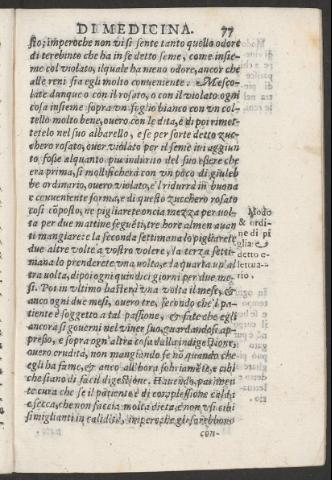 DI MEDICINA. 77
sto; imperoche non vi si sente tanto quello odore
di terebinto che ha in se detto seme, come insie-
me col violato, il quale ha meno odore, ancor che
alle reni sia egli molto conueniente. Mesco-
late dunque o con il rosato, o con il violato ogni
cosa insieme sopra vn foglio bianco con vn col-
tello molto bene, ouero con le dita, e di poi rimet-
tetelo nel suo albarello, e se per sorte detto zuc
chero rosato, ouer violato per il seme iui aggiun
to fose alquanto piu indurito del suo essere che
era prima, si mollificherà con vn poco di giuleb
be ordinario, ouero violato, e'l ridurrà in buona
e conueniente forma, e di questo zucchero rosato
cosi cōposto, ne pigliarete oncia mezza per uol-
ta per due mattine segueti, tre hore almen auan
ti mangiare: e la seconda settimana lo pigliarete
due altre volte a vostro volere, la terza setti-
mana lo prenderete vna uolta, e la quarta un'al
tra uolta, di poi ogni quindici giorni per due me-
si. Poi in vltimo basterà vna volta il mese, &
anco ogni due mesi, ouero tre, secondo che'l pa-
tiente è soggetto a tal passione, & fate che egli
ancora si gouerni nel viuer suo, guardandosi ap-
presso, e sopra ogn'altra cosa dalla indigestione,
ouero crudità, non mangiando se nō quando che
egli ha fame, & anco all'hora sobriamēte, e cibi
che siano di facil digestione. Hauendo parimen
te cura che se il patiente è di complessione calda
e secca, che non faccia molta dieta, e non vsi cibi
simiglianti in calidità, imperoche gli sarebbono
con-
Modo
& ordi-
ne di pi
gliare
detto e-
lettua-
rio.